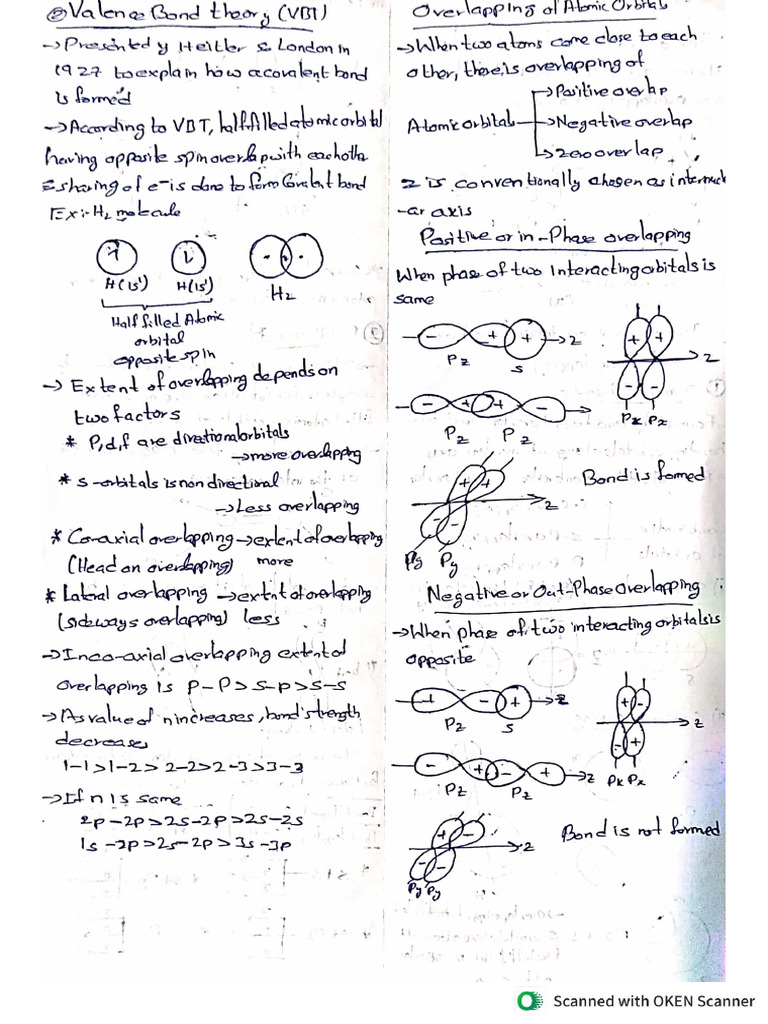 ② Valence Bond theory (VBT)
→ Presented y Heitler & London in
1927 to explain how a covalent bond
is formed
→ According to VBT, half filled atomic orbital
having opposite spin overlap with each other
& sharing of e- is done to form Covalent bond
Ex:- H2 molecule
H(1s¹) H(1s¹) H2
Half filled Atomic
orbital
opposite spin
→ Extent of overlapping depends on
two factors
* P,d,f are directional orbitals
→ more overlapping
* s-orbitals is non directional
→ Less overlapping
* Co-axial overlapping → extent of overlapping
(Head on overlapping) more
* Lateral overlapping → extent of overlapping
(sideways overlapping) less
→ In co-axial overlapping extent of
overlapping is P-P > s-p > s-s
→ As value of n increases, bond strength
decreases
1-1 > 1-2 > 2-2 > 2-3 > 3-3
→ If n is same
2p-2p > 2s-2p > 2s-2s
1s-2p > 2s-2p > 3s-3p
Overlapping of Atomic Orbitals
→ When two atoms come close to each
other, there is overlapping of
→ Positive overlap
Atomic orbitals → Negative overlap
→ Zero overlap
z is conventionally chosen as internucle
-ar axis
Positive or in-Phase overlapping
When phase of two Interacting orbitals is
same
- + + z
Pz s
+ + z
- -
Px Px
- + + -
Pz Pz
+ + Bond is formed
z
- -
Py Py
Negative or Out-Phase overlapping
→ When phase of two interacting orbitals is
opposite
+ - + z
Pz s
+ - z
- +
Px Px
- + - + z
Pz Pz
+ - Bond is not formed
z
- +
Py Py
Scanned with OKEN Scanner